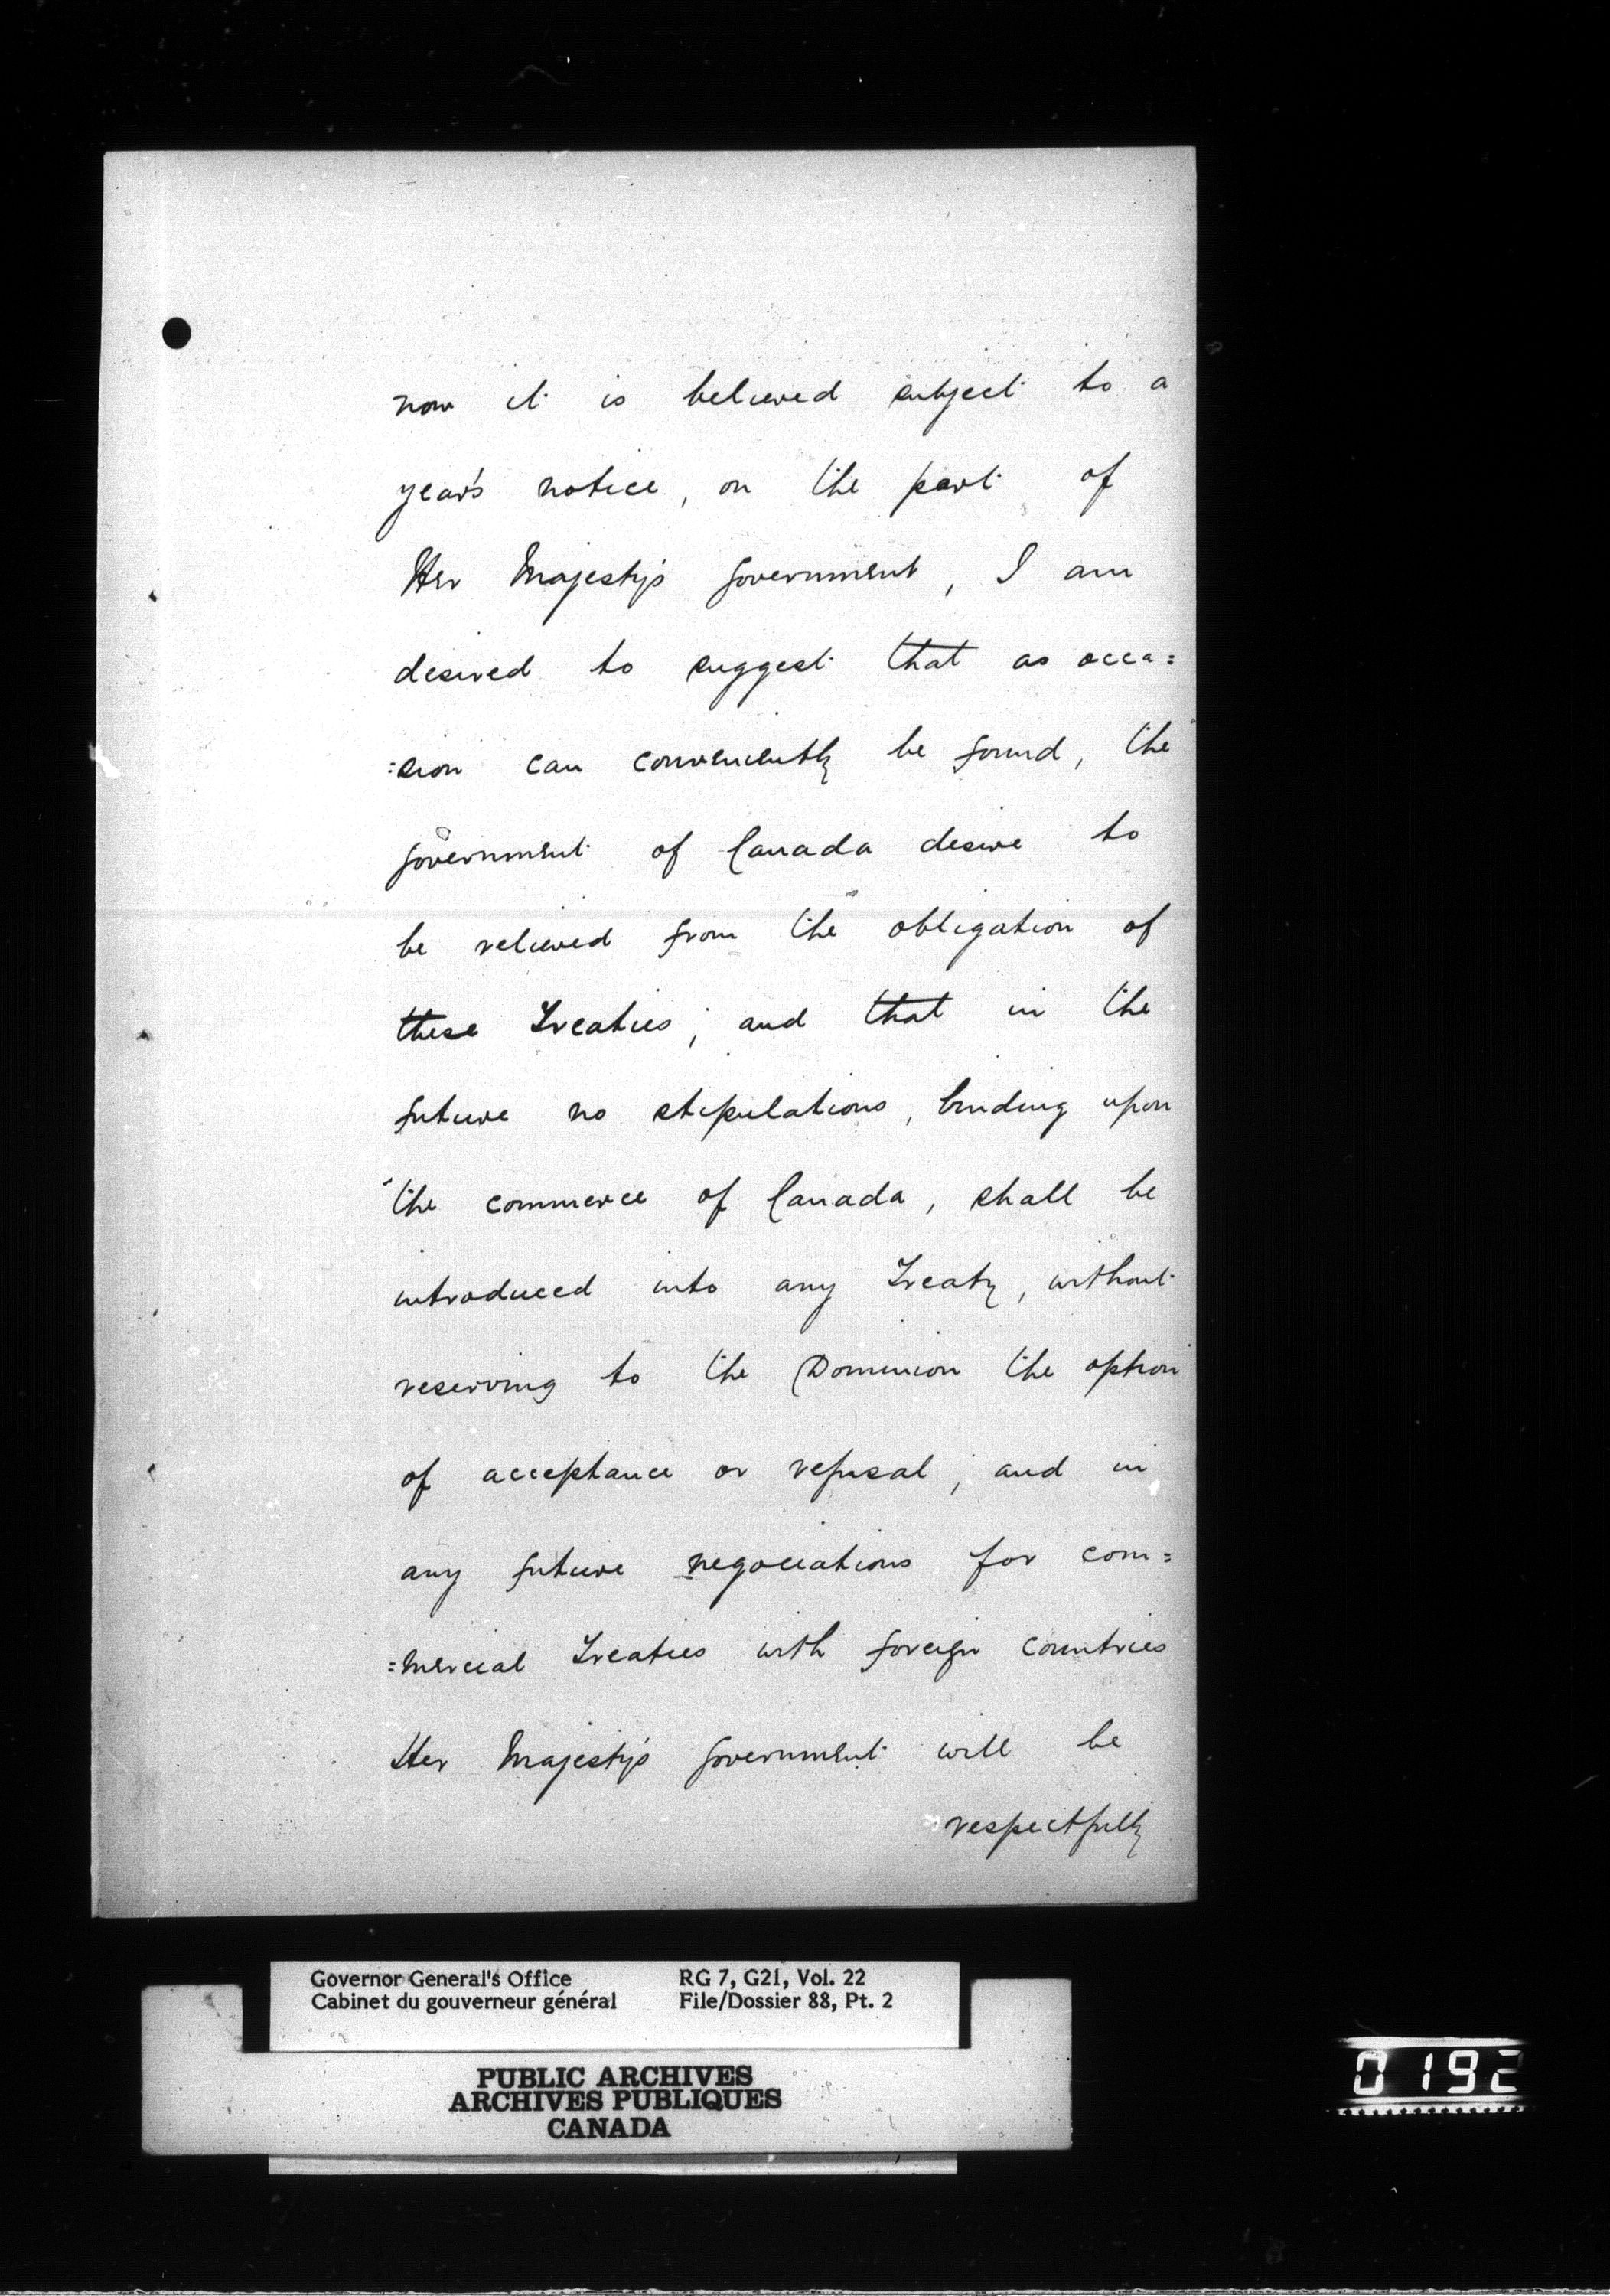 now it is believed subject to a
year's notice, on the part of
Her Majesty's Government, I am
desired to suggest that as occa=
=sion can conveniently be found, the
Government of Canada desire to
be relieved from the obligation of
these Treaties; and that in the
future no stipulations, binding upon
the commerce of Canada, shall be
introduced into any Treaty, without
reserving to the Dominion the option
of acceptance or refusal; and in
any future negociations for com=
=mercial Treaties with foreign countries
Her Majesty's Government will be
respectfully
Governor General's Office RG 7, G21, Vol. 22
Cabinet du gouverneur général File/Dossier 88, Pt. 2
PUBLIC ARCHIVES
ARCHIVES PUBLIQUES
CANADA
0192